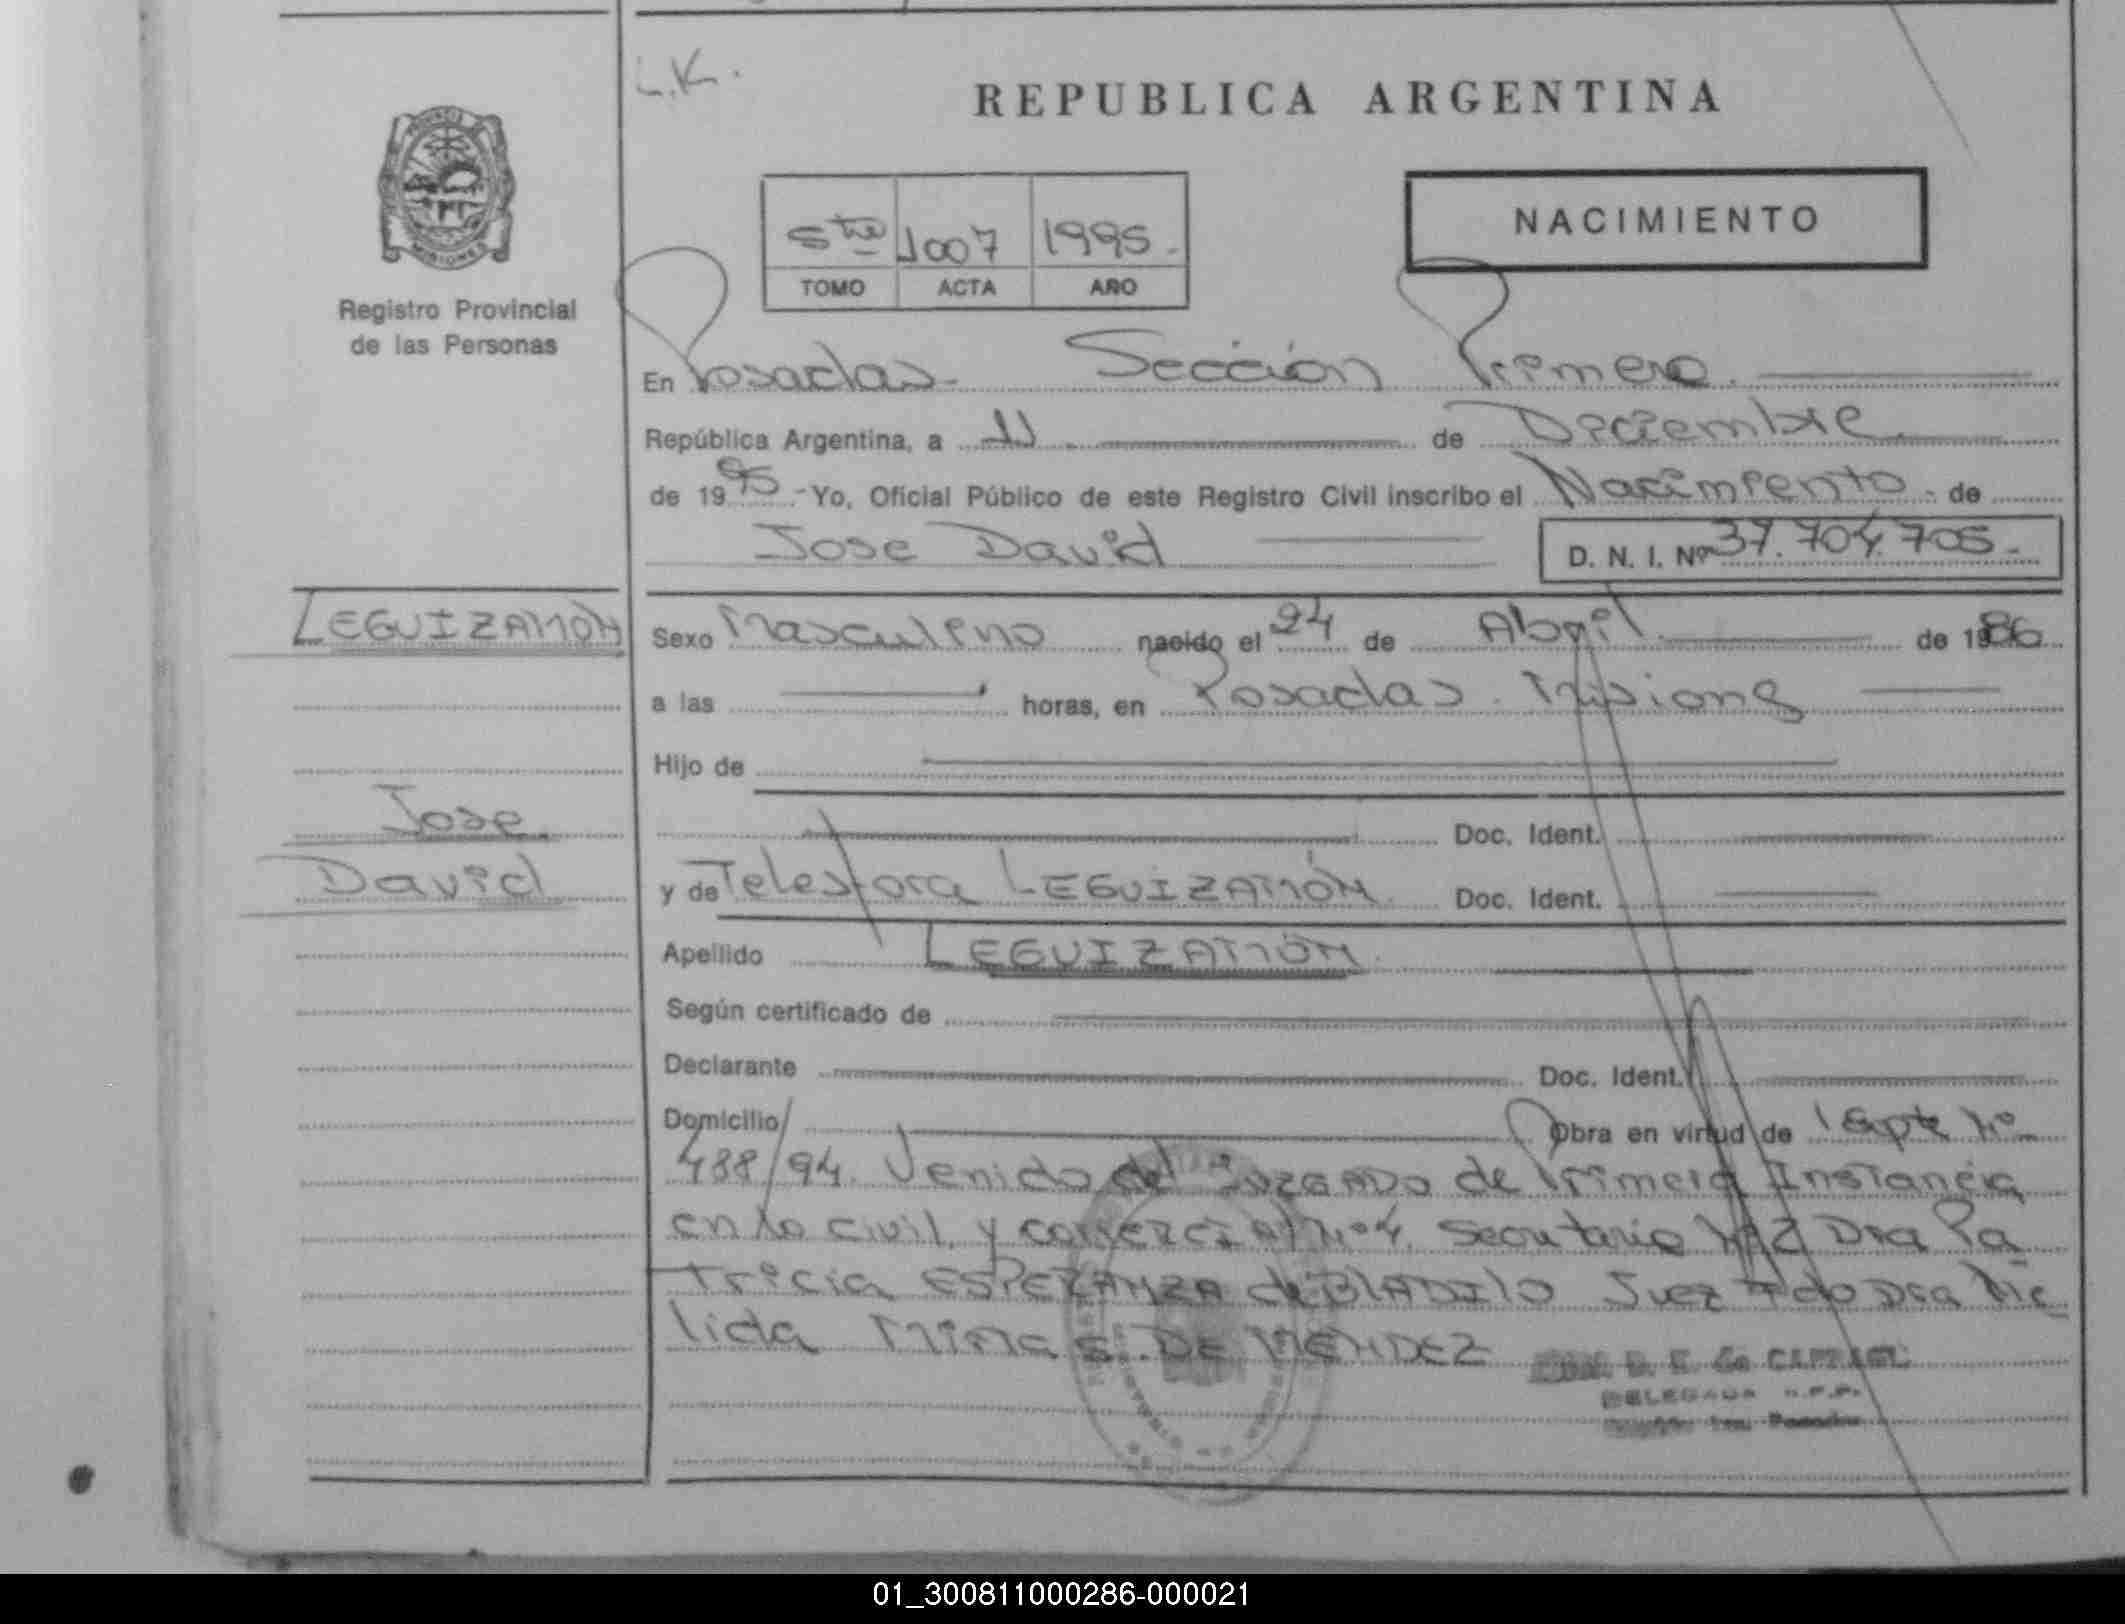 L.K.
REPUBLICA ARGENTINA
PROVINCIA DE
MISIONES
Registro Provincial
de las Personas
5to 1007 1995.
TOMO ACTA AÑO
NACIMIENTO
En Posadas. Sección Primera.
República Argentina, a 11 de Diciembre
de 1995 - Yo, Oficial Público de este Registro Civil inscribo el Nacimiento - de
Jose David D. N. I. Nº 37.704.705.
LEGUIZAMÓN
Sexo Masculino nacido el 24 de Abril de 1986
a las horas, en Posadas. Misiones
Hijo de
Jose
David
Doc. Ident.
y de Telesfora LEGUIZAMÓN Doc. Ident.
Apellido LEGUIZAMÓN
Según certificado de
Declarante Doc. Ident.
Domicilio Obra en virtud de Expte Nº
488/94. Venido del JUZGADO de Primera Instancia
en lo civil y COMERCIAL Nº 4 Secretaria Nº 2 Dra Pa
tricia ESPERANZA de BLADILO Juez Fdo Dra
lida DE MENDEZ
DELEGADA R.P.P.
01_300811000286-000021